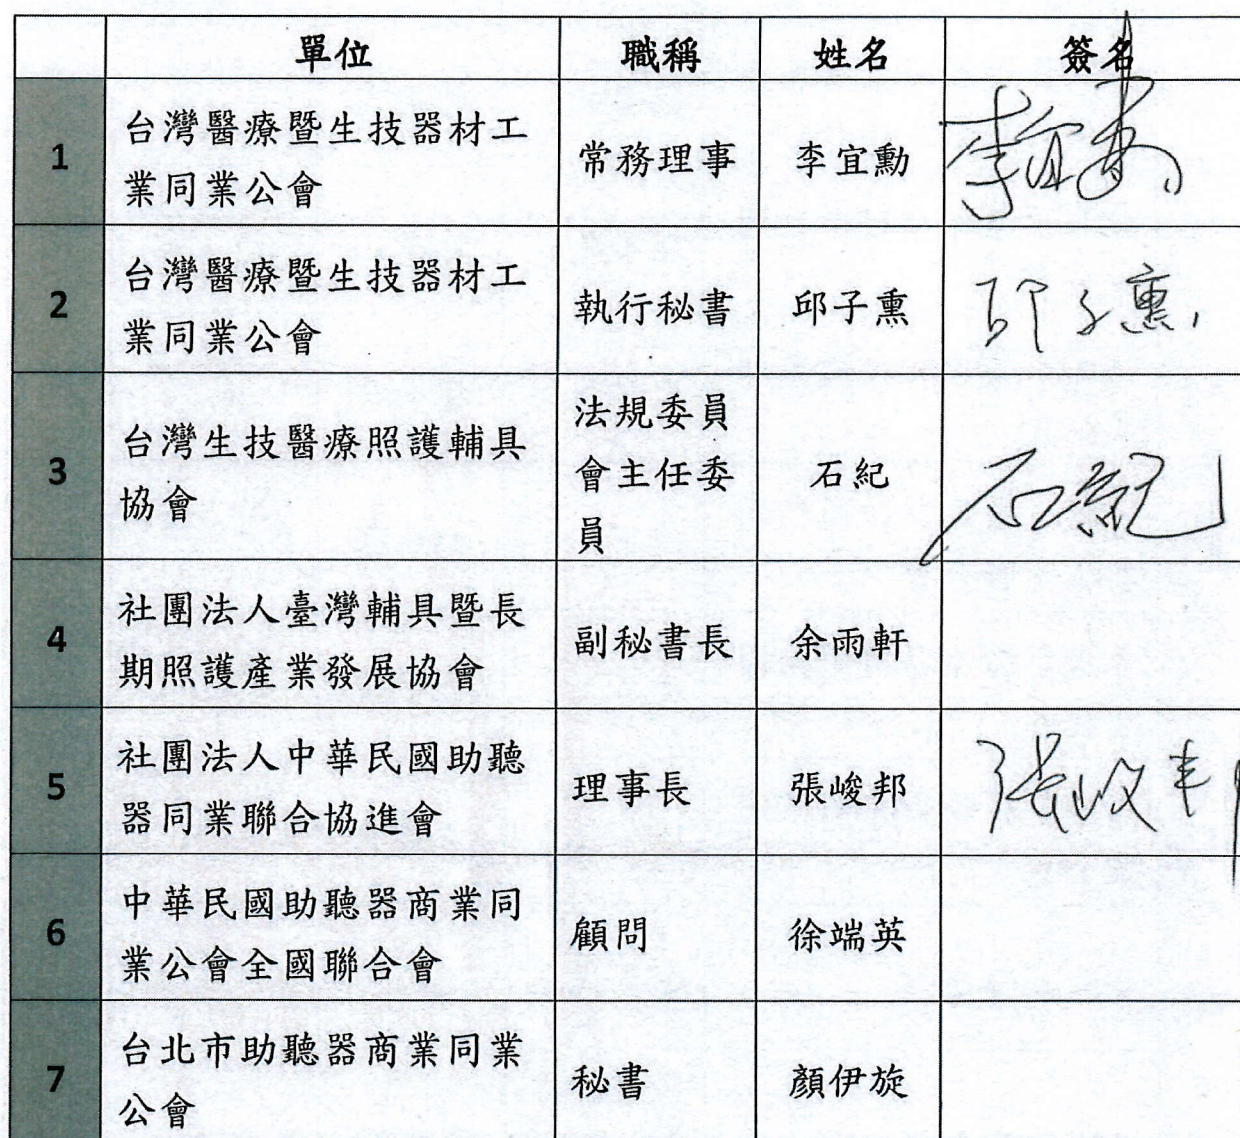 單位 職稱 姓名 簽名
1 台灣醫療暨生技器材工
業同業公會 常務理事 李宜勳 李宜勳
2 台灣醫療暨生技器材工
業同業公會 執行秘書 邱子熏 邱子熏
3 台灣生技醫療照護輔具
協會 法規委員
會主任委
員 石紀 石紀
4 社團法人臺灣輔具暨長
期照護產業發展協會 副秘書長 余雨軒
5 社團法人中華民國助聽
器同業聯合協進會 理事長 張峻邦 張峻邦
6 中華民國助聽器商業同
業公會全國聯合會 顧問 徐端英
7 台北市助聽器商業同業
公會 秘書 顏伊旋